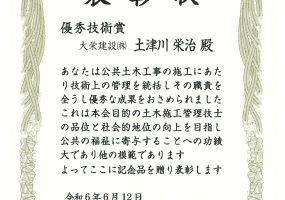 表彰状
優秀技術賞
大栄建設㈱ 土津川 栄治 殿
あなたは公共土木工事の施工にあた
り技術上の管理を統括しその職責を
全うし優秀な成果をおさめられました
これは本会目的の土木施工管理技士
の品位と社会的地位の向上を目指し
公共の福祉に寄与することへの功績
大であり他の模範であります
よってここに記念品を贈り表彰します
令和6年6月12日